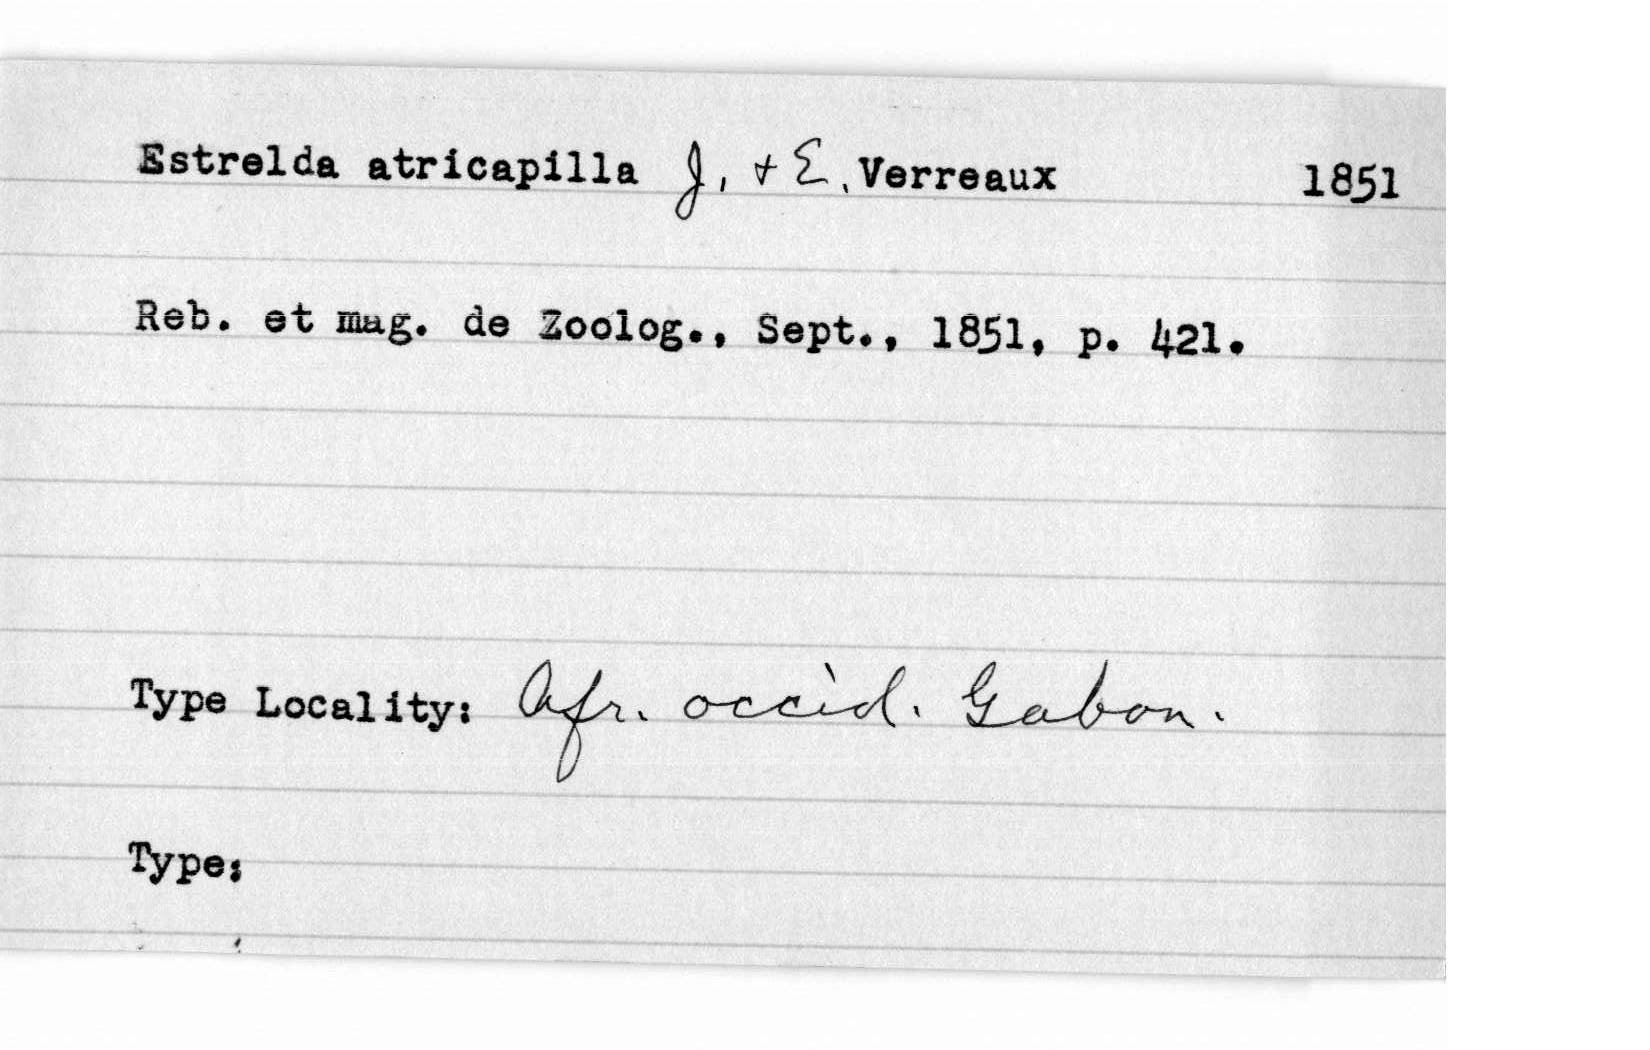 Estrelda atricapilla J. + E. Verreaux 1851
Reb. et mag. de Zoolog., Sept., 1851, p. 421.
Type Locality: Afr. occid. Gabon.
Type: